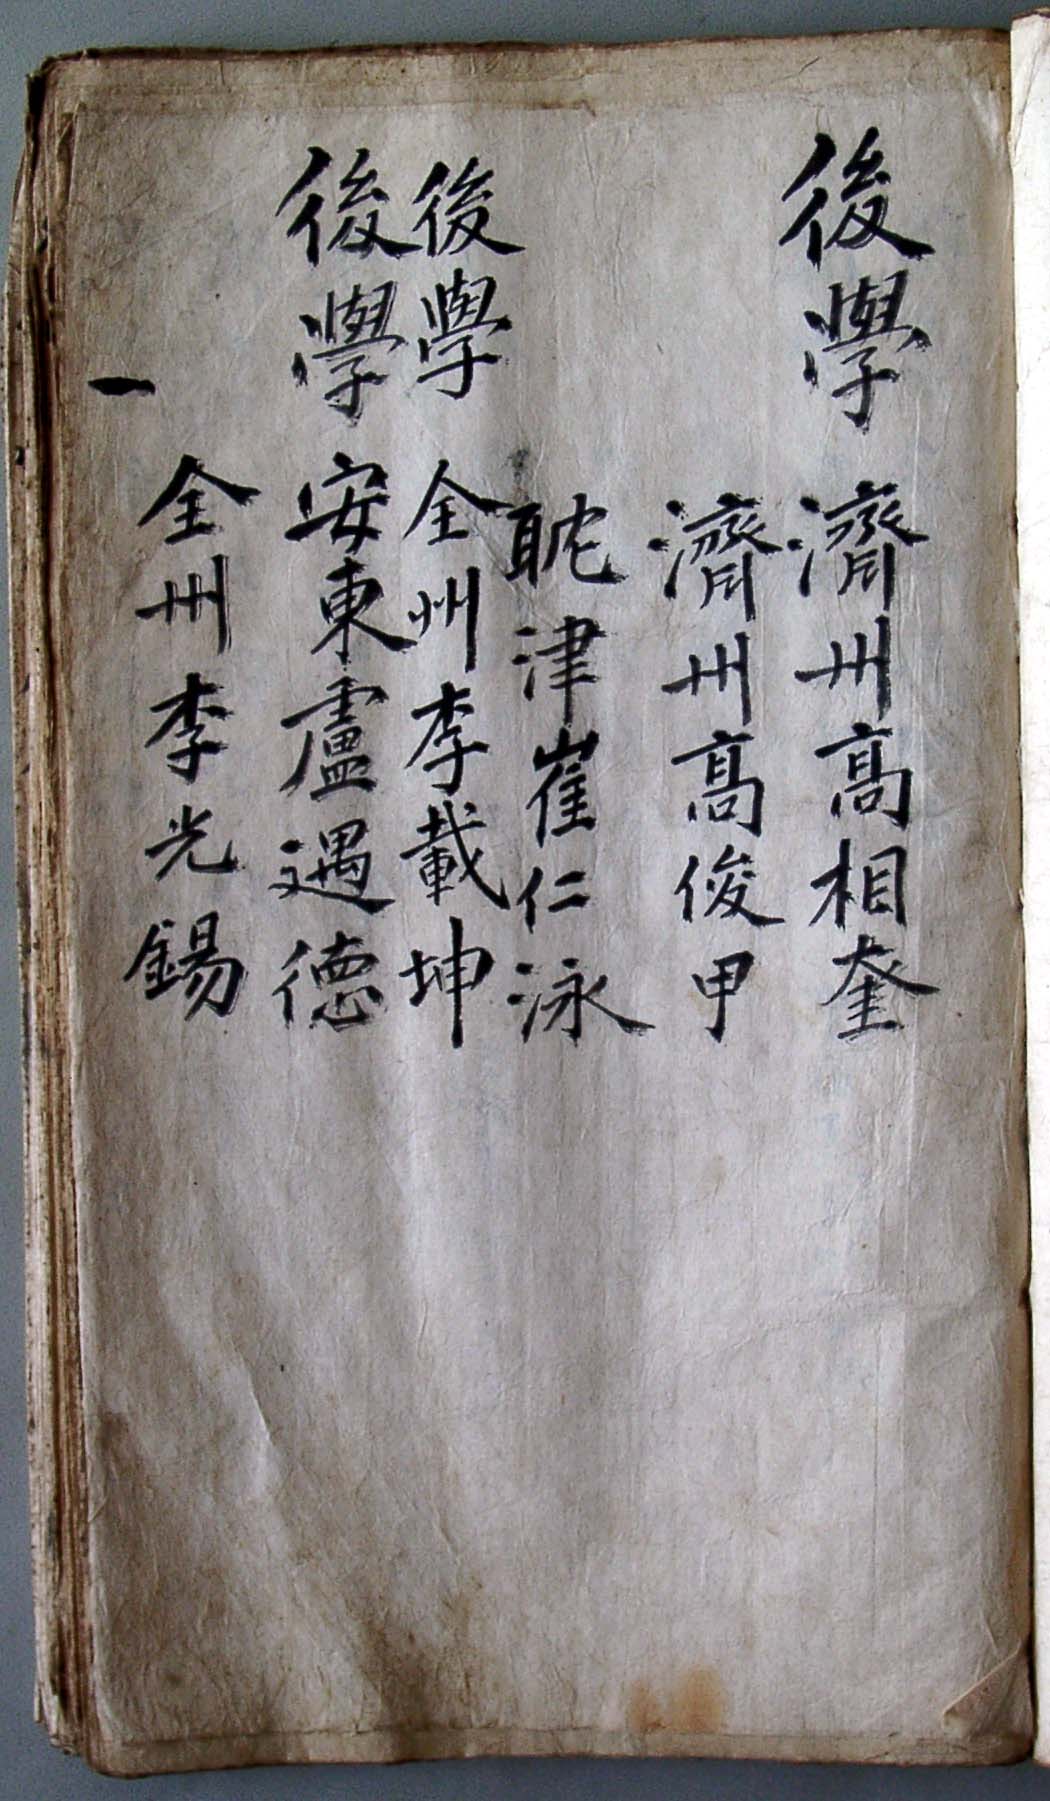 後學 濟州高相奎
濟州高俊甲
耽津崔仁泳
後學 全州李載坤
後學 安東盧遇德
全州李光錫
一